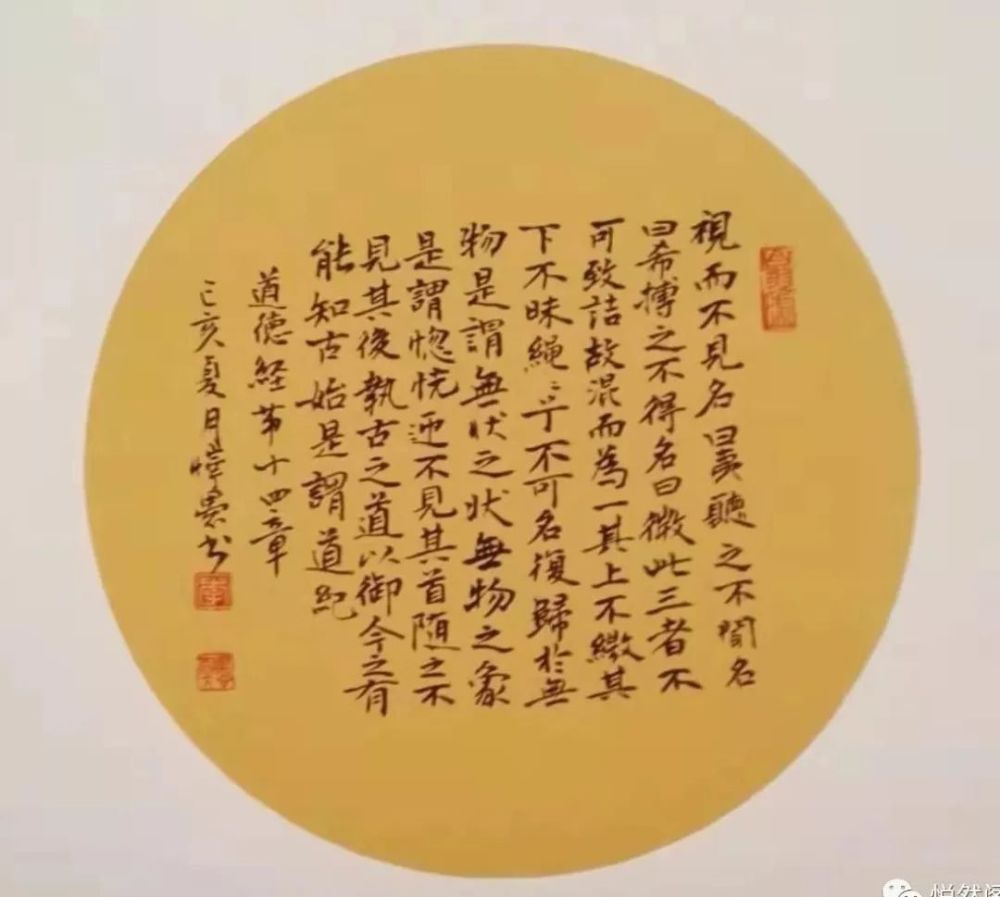 視而不見名曰夷聽之不聞名
曰希搏之不得名曰微此三者不
可致詰故混而為一其上不皦其
下不昧繩〻兮不可名復歸於無
物是謂無狀之狀無物之象
是謂惚恍迎不見其首随之不
見其後執古之道以御今之有
能知古始是謂道紀
道德経第十四章
己亥夏月 书
悦然阁